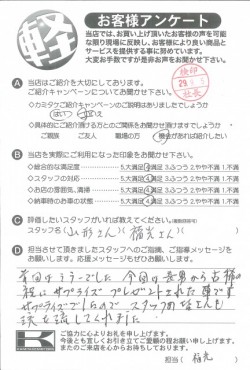 軽
お客様アンケート
当店では、お買い上げ頂いたお客様の声を可能
な限り現場に反映し、お客様により良い商品と
サービスを提供する事に努めています。
大変お手数ですが是非お声をお聞かせ下さい。
A 当店はご紹介を大切にしております。
ご紹介キャンペーンについてお聞かせ下さい。
はい
いいえ
ご親族 ご友人 職場の方 機会があれば紹介したい
B 当店を実際にご利用になった印象をお聞かせ下さい。
◇総合的な満足度 5.大満足 4.満足 3.ふつう 2.やや不満 1.不満
◇スタッフの対応 5.大満足 4.満足 3.ふつう 2.やや不満 1.不満
◇お店の雰囲気、清掃 5.大満足 4.満足 3.ふつう 2.やや不満 1.不満
◇納車時のお車の状態 5.大満足 4.満足 3.ふつう 2.やや不満 1.不満
C 評価したいスタッフがいれば教えてください。
スタッフ名(山形さん)(稲光さん)
D 担当させて頂きましたスタッフへのご指摘、ご指導メッセージを
お願いします。応援メッセージもぜひお願いします。
サプライズ プレゼントされた車です
サプライズでしたので スタッフの皆さんも
涙を流してくれました
ご協力に心よりお礼を申し上げます。
今後とも宜しくお引き立てご愛顧の程お願い申し上げます。
またのご来店を心からお待ちしております。
担当( 稲光 )